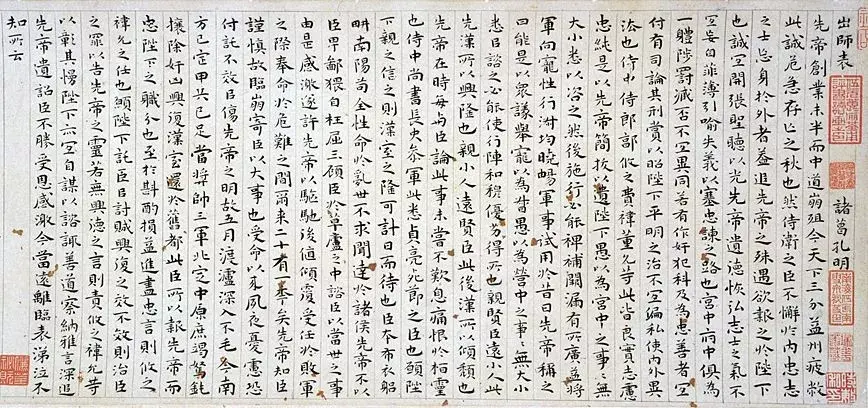 出師表 諸葛孔明
先帝創業未半而中道崩殂今天下三分益州疲敝
此誠危急存亡之秋也然侍衛之臣不懈於內忠志
之士忘身於外者蓋追先帝之殊遇欲報之於陛下
也誠宜開張聖聽以光先帝遺德恢弘志士之氣不
宜妄自菲薄引喻失義以塞忠諫之路也宮中府中俱為
一體陟罰臧否不宜異同若有作奸犯科及為忠善者宜
付有司論其刑賞以昭陛下平明之治不宜偏私使內外異
法也侍中侍郎郭攸之費禕董允等此皆良實志慮
忠純是以先帝簡拔以遺陛下愚以為宮中之事事無
大小悉以咨之然後施行必能裨補闕漏有所廣益將
軍向寵性行淑均曉暢軍事試用於昔日先帝稱之
曰能是以眾議舉寵以為督愚以為營中之事事無大小
悉臣諮之必能使行陣和穆優劣得所也親賢臣遠小人此
先漢所以興隆也親小人遠賢臣此後漢所以傾頹也
先帝在時每與臣論此事未嘗不歎息痛恨於桓靈
也侍中尚書長史參軍此悉貞亮死節之臣也陛
下親之信之則漢室之隆可計日而待也臣本布衣躬
耕南陽苟全性命於亂世不求聞達於諸侯先帝不以
臣卑鄙猥自枉屈三顧臣於草廬之中諮臣以當世之事
由是感激遂許先帝以驅馳後值傾覆受任於敗軍
之際奉命於危難之間爾來二十有一年矣先帝知臣
謹慎故臨崩寄臣以大事也受命以來夙夜憂慮恐
付託不效以傷先帝之明故五月渡瀘深入不毛今南
方已定甲兵已足當獎帥三軍北定中原庶竭駑鈍
攘除奸凶興復漢室還於舊都此臣所以報先帝而
忠陛下之職分也至於斟酌損益進盡忠言則攸之
禕允之任也願陛下託臣以討賊興復之效不效則治臣
之罪以告先帝之靈若無興德之言則責攸之禕允等
以彰其慢陛下亦宜自謀以諮諏善道察納雅言深追
先帝遺詔臣不勝受恩感激今當遠離臨表涕泣不
知所云